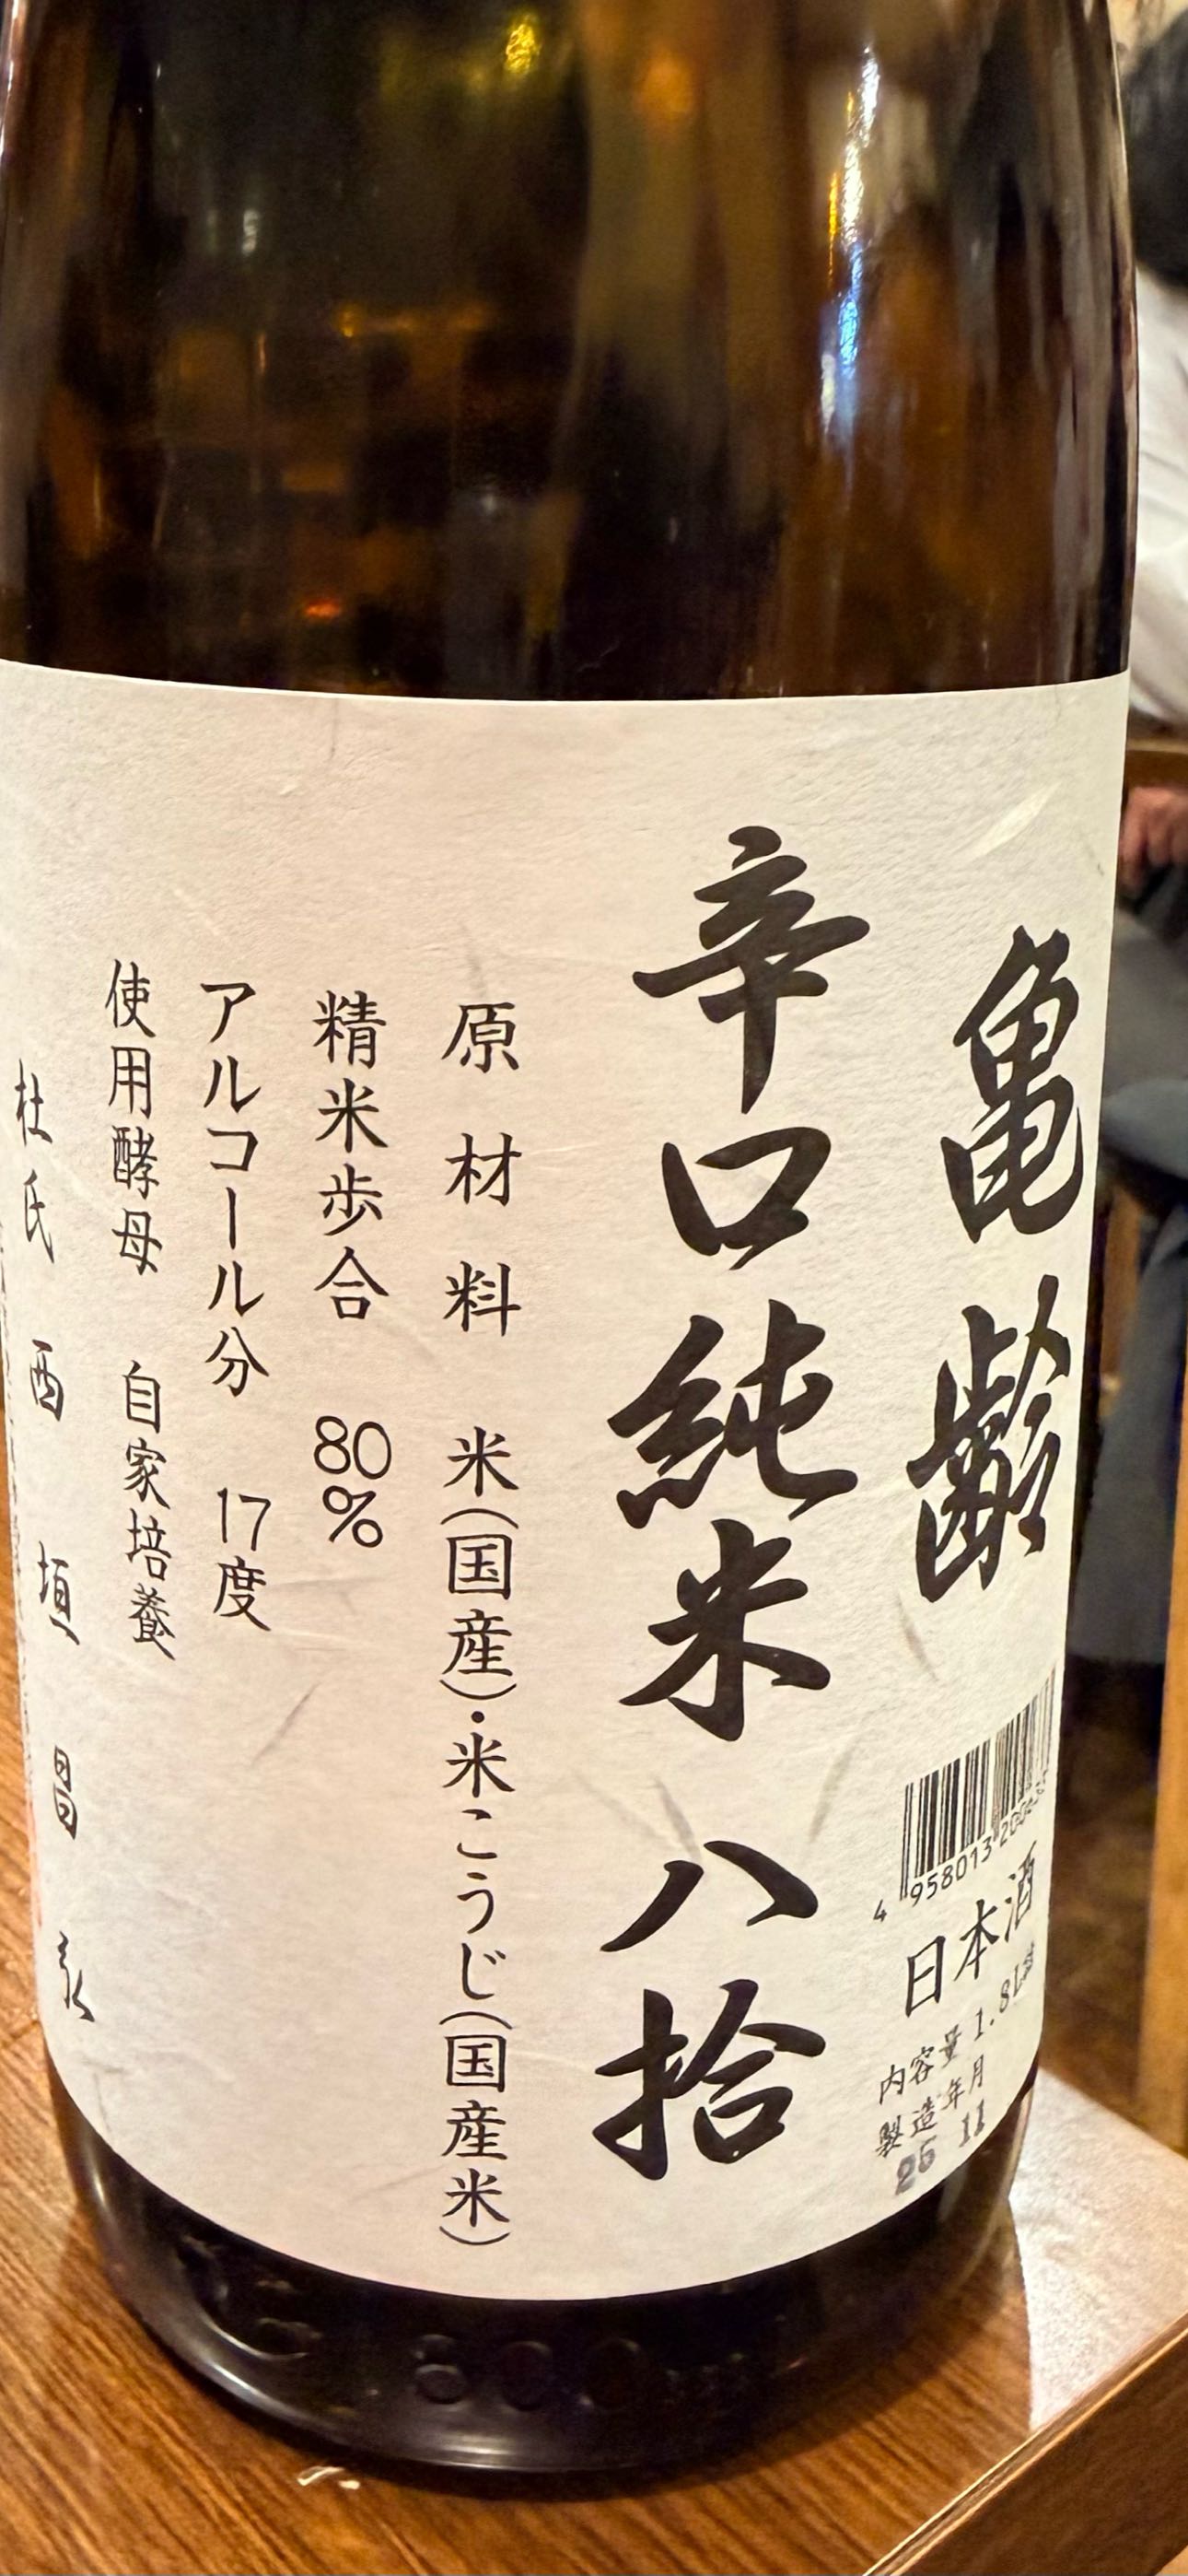 亀齢
辛口純米 八拾
原材料 米(国産)・米こうじ(国産米)
精米歩合 80%
アルコール分 17度
使用酵母 自家培養
杜氏 西垣昌
4 958013 200
日本酒
内容量 1.8L
製造年月
25 11